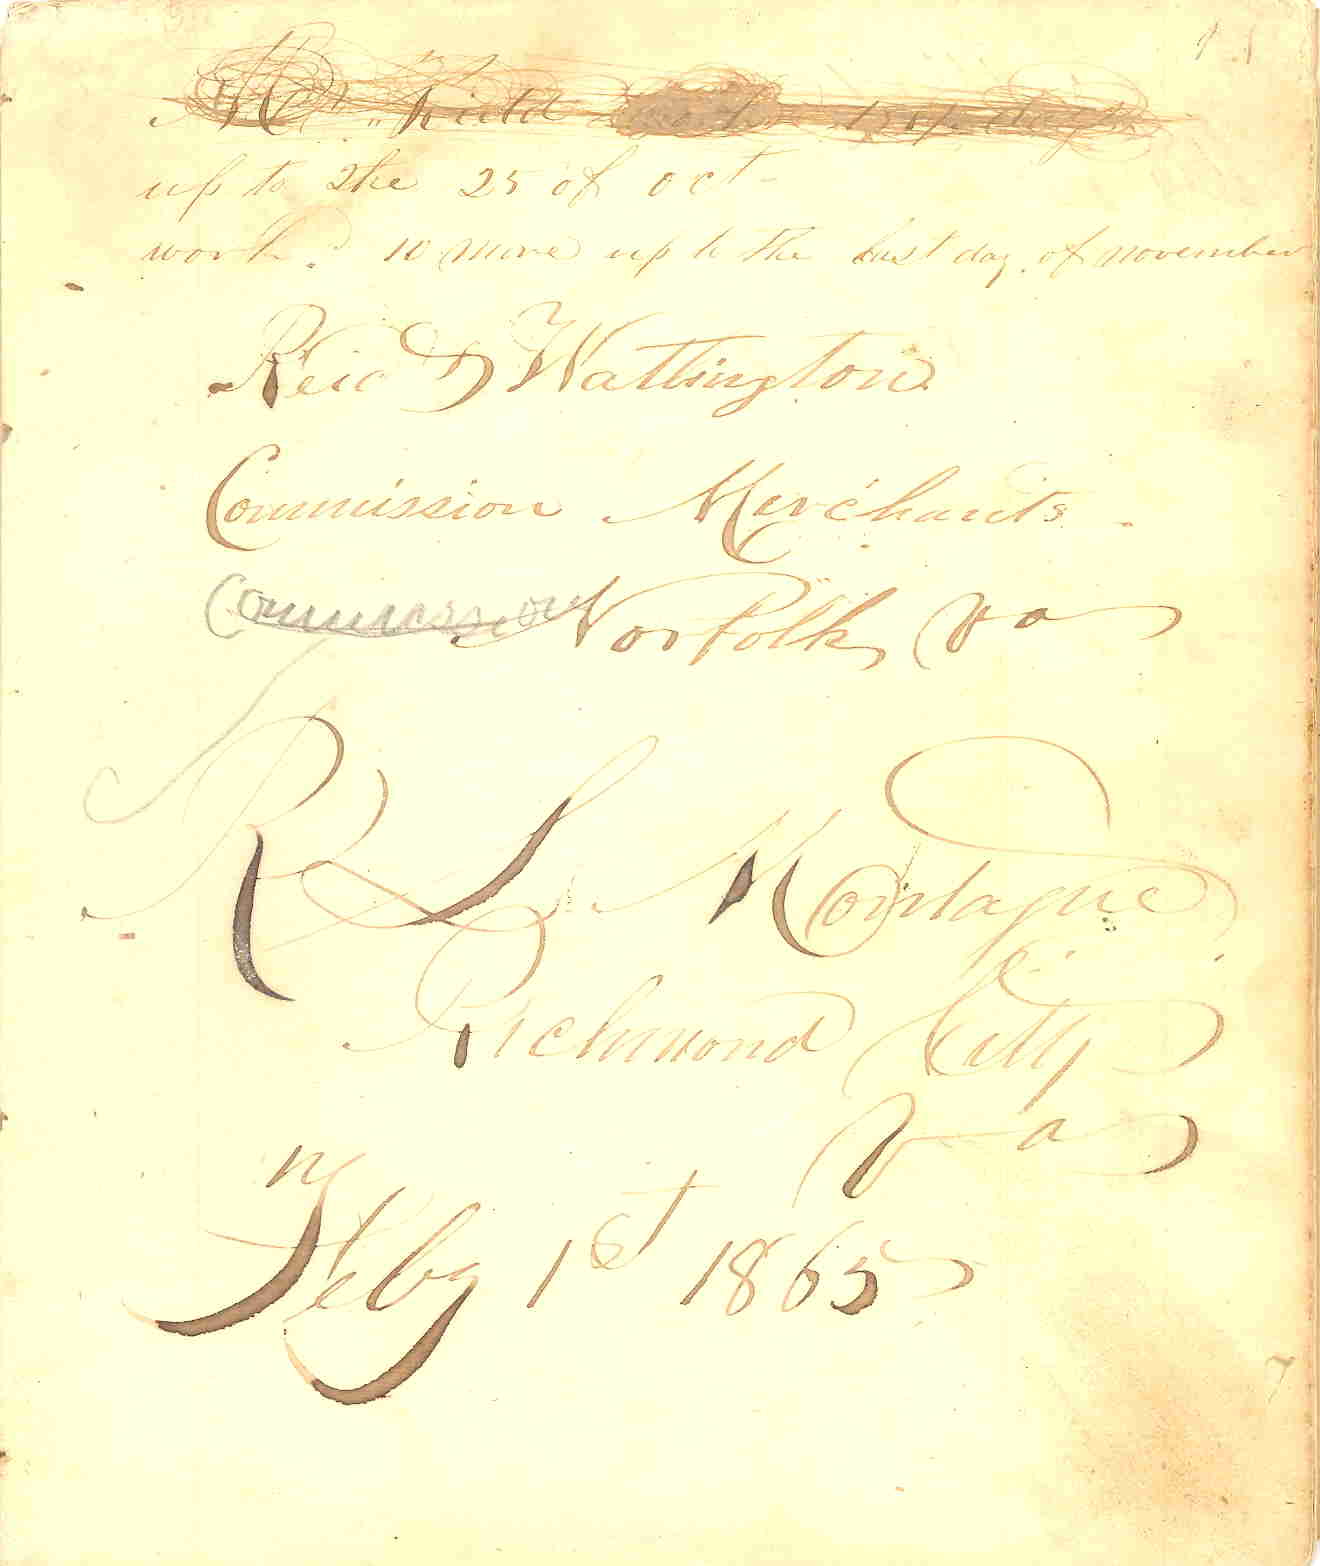 up to the 25 of oct-
work. 10 more up to the last day of november
Reid & Watlington
Commission Merchants
Commission Norfolk Va
R L Montague
Richmond City
Va
Feby 1st 1865